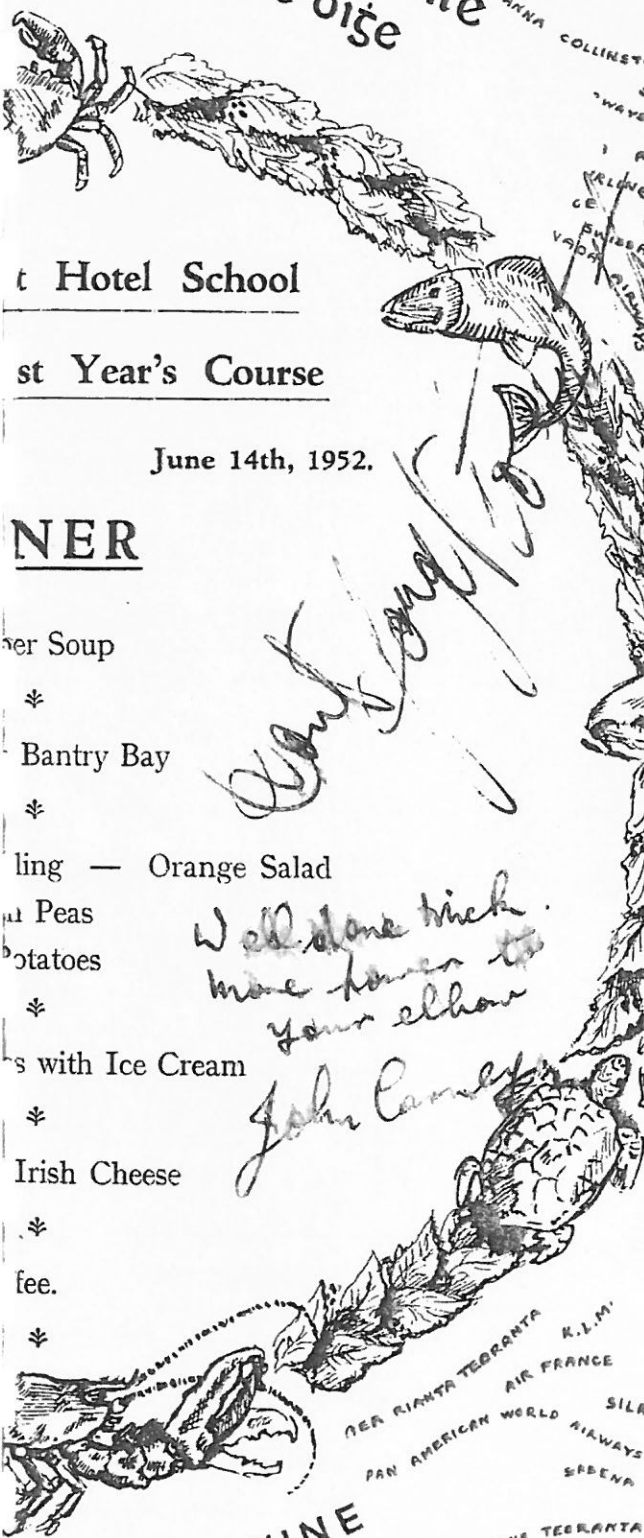 óige
ANNA COLLINST
t Hotel School
st Year's Course
June 14th, 1952.
NER
er Soup
Bantry Bay
ling — Orange Salad
Peas
otatoes
s with Ice Cream
Irish Cheese
fee.
Well done Mick.
more power to
your elbow
John
AER RIANTA TEORANTA
K.L.M.
AIR FRANCE
PAN AMERICAN WORLD AIRWAYS
SABENA
TEORANTA
AIRWAYS
UNE